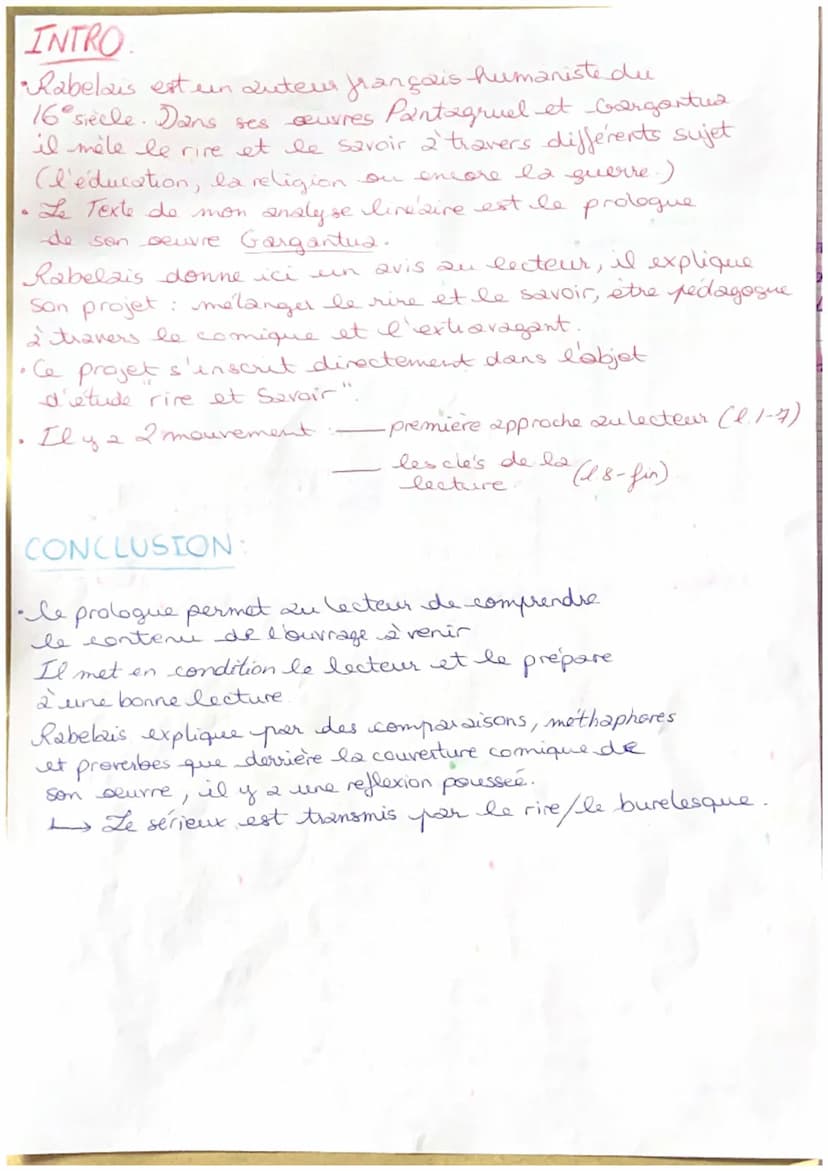 INTRO.
• Rabelais est un auteur français humaniste du
16e siècle. Dans ses œuvres Pantagruel et Gargantua
il mêle le rire et le savoir à travers différents sujet
(l'éducation, la religion ou encore la guerre.)
• Le Texte de mon analyse linéaire est le prologue
de son oeuvre Gargantua.
Rabelais donne ici un avis au lecteur, il explique
son projet : mélanger le rire et le savoir, être pédagogue
à travers le comique et l'extravagant.
• Ce projet s'inscrit directement dans l'objet
d'étude "rire et Savoir".
• Il y a 2 mouvement : — première approche au lecteur (l.1-7)
— les clés de la lecture (l 8-fin)
CONCLUSION:
• le prologue permet au lecteur de comprendre
le contenu de l'ouvrage à venir
Il met en condition le lecteur et le prépare
à une bonne lecture
Rabelais explique par des comparaisons, méthaphores
et proverbes que derrière la couverture comique de
son oeuvre, il y a une reflexion poussée.
↳ Le sérieux est transmis par le rire/le burelesque.